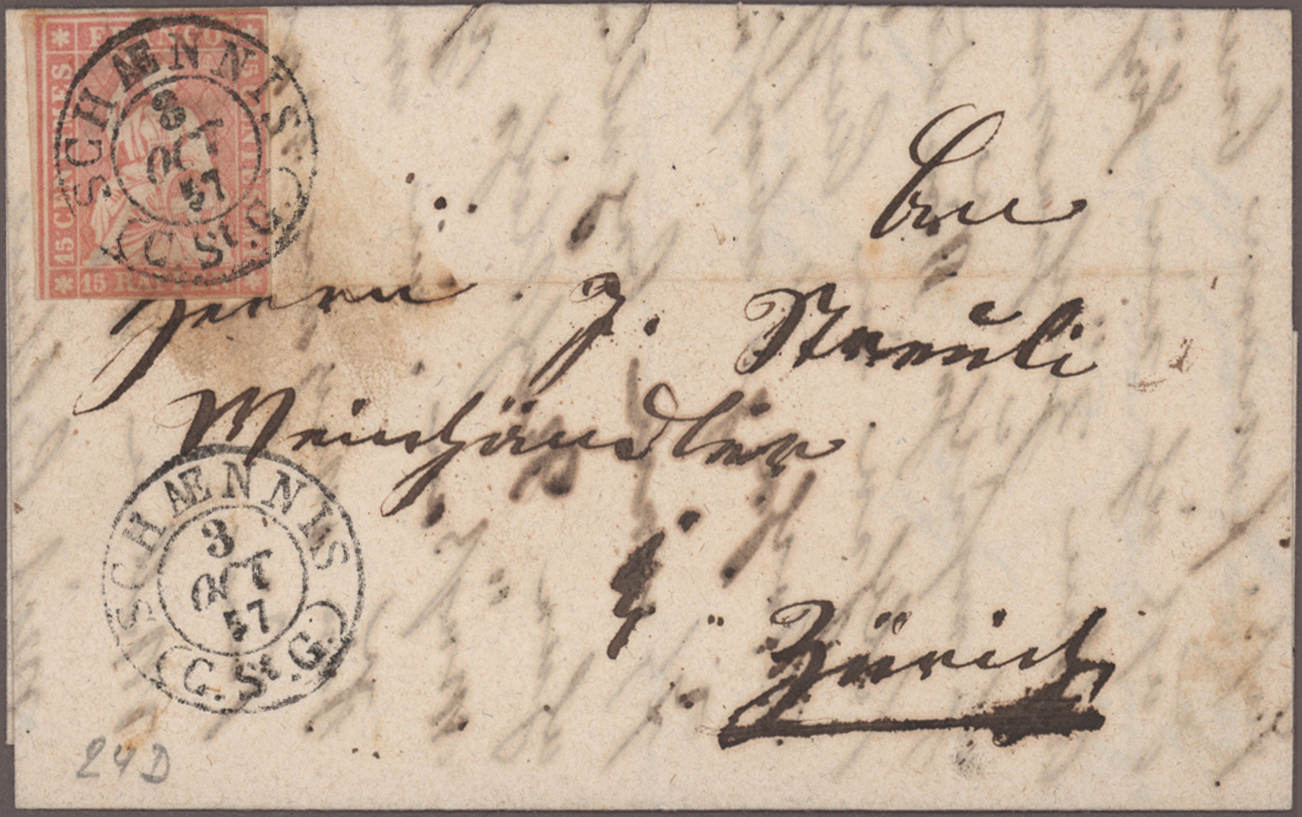 FRANCO
15 CENTIMES
15 RAPPEN
SCHÆNNIS
3
OCT
57
(C. St. G.)
Herrn J. Streŭli
Weinhändler
Zürich
SCHÆNNIS
3
OCT
57
(C. St. G.)
24D